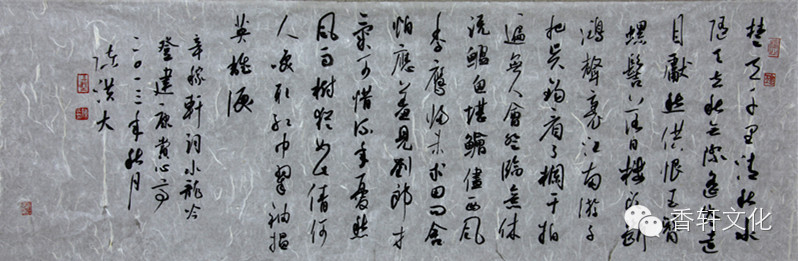 楚天千里清秋水
随天去秋无际遥岑远
目献愁供恨玉簪
螺髻落日楼头断
鸿声里江南游子
把吴钩看了栏干拍
遍无人会登临意休
说鲈鱼堪鲙儘西风
季鹰归未求田问舍
怕应羞见刘郎才
气可惜流年忧愁
风雨树犹如此倩何
人唤取红巾翠袖揾
英雄泪
辛稼轩词水龙吟
登建康赏心亭
二〇一三年秋月
洪大
香轩文化